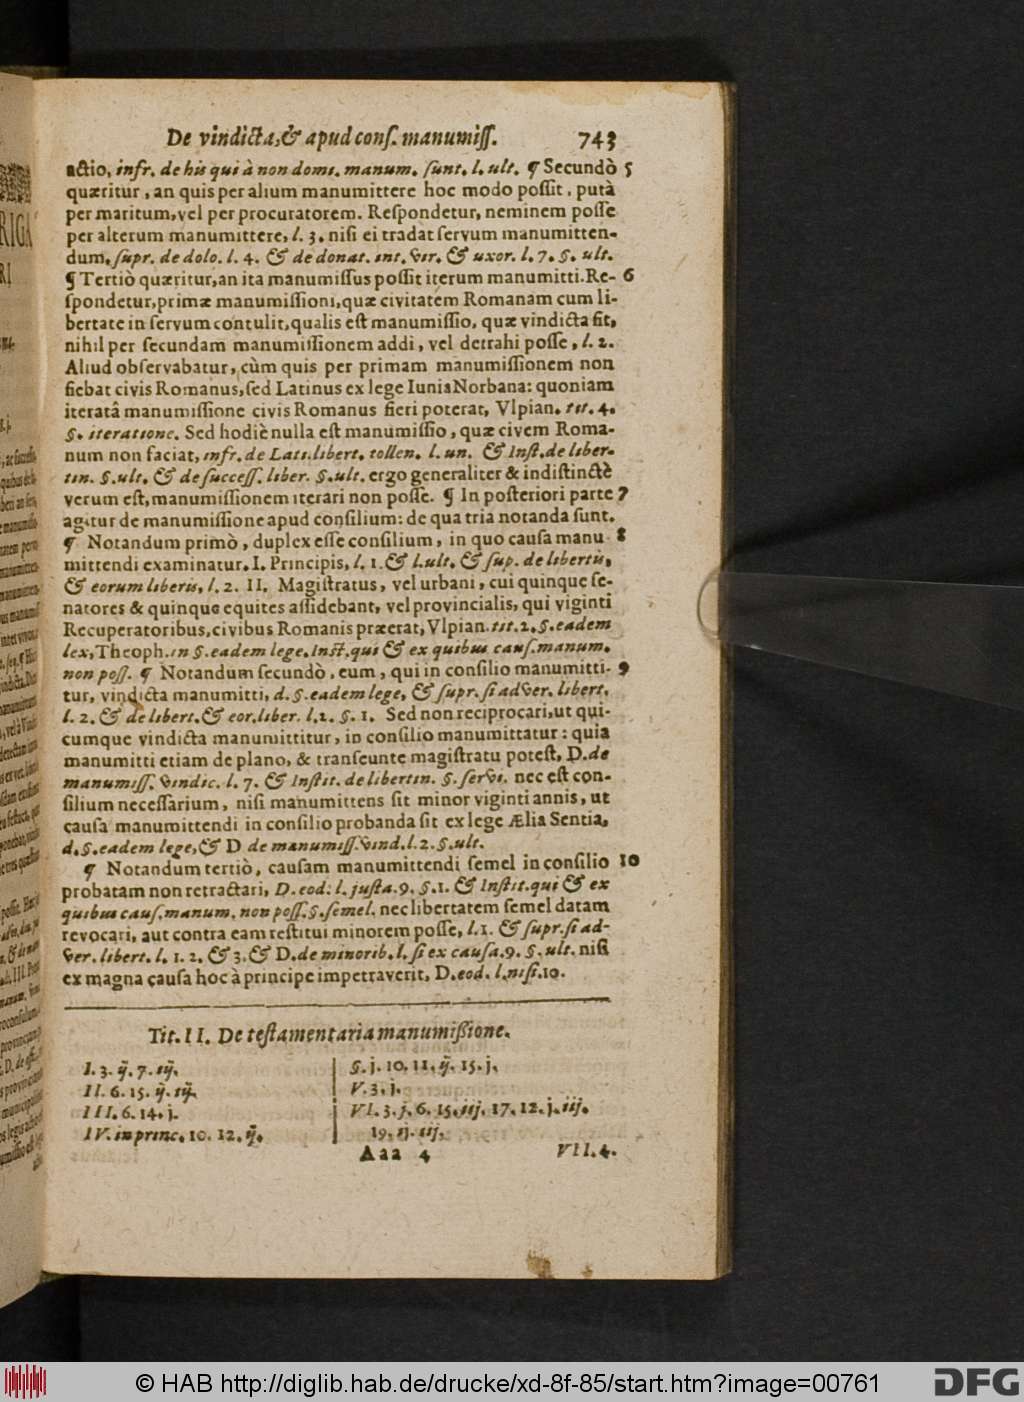 De vindicta, & apud cons. manumiss. 743
actio, infr. de his qui à non domi. manum. sunt. l. ult. ¶ Secundò 5
quæritur, an quis per alium manumittere hoc modo possit, putà
per maritum, vel per procuratorem. Respondetur, neminem posse
per alterum manumittere, l. 3. nisi ei tradat servum manumitten-
dum, supr. de dolo. l. 4. & de donat. int. vir. & uxor. l. 7. §. ult.
¶ Tertiò quæritur, an ita manumissus possit iterum manumitti. Re- 6
spondetur, primæ manumissioni, quæ civitatem Romanam cum li-
bertate in servum contulit, qualis est manumissio, quæ vindicta fit,
nihil per secundam manumissionem addi, vel detrahi posse, l. 2.
Aliud observabatur, cùm quis per primam manumissionem non
fiebat civis Romanus, sed Latinus ex lege Iunia Norbana: quoniam
iteratâ manumissione civis Romanus fieri poterat, Vlpian. tit. 4.
§. iteratione. Sed hodiè nulla est manumissio, quæ civem Roma-
num non faciat, infr. de Lati. libert. tollen. l. un. & Inst. de liber-
tin. §. ult. & de success. liber. §. ult. ergo generaliter & indistinctè
verum est, manumissionem iterari non posse. ¶ In posteriori parte 7
agitur de manumissione apud consilium: de qua tria notanda sunt.
¶ Notandum primò, duplex esse consilium, in quo causa manu 8
mittendi examinatur. I. Principis, l. 1. & l. ult. & sup. de libertis,
& eorum liberis, l. 2. II. Magistratus, vel urbani, cui quinque se-
natores & quinque equites assidebant, vel provincialis, qui viginti
Recuperatoribus, civibus Romanis præerat, Vlpian. tit. 2. §. eadem
lex, Theoph. in §. eadem lege. Inst. qui & ex quibus caus. manum.
non poss. ¶ Notandum secundò, eum, qui in consilio manumitti- 9
tur, vindicta manumitti, d. §. eadem lege, & supr. si adver. libert.
l. 2. & de libert. & eor. liber. l. 2. §. 1. Sed non reciprocari, ut qui-
cumque vindicta manumittitur, in consilio manumittatur: quia
manumitti etiam de plano, & transeunte magistratu potest, D. de
manumiss. vindic. l. 7. & Instit. de libertin. §. servi. nec est con-
silium necessarium, nisi manumittens sit minor viginti annis, ut
causa manumittendi in consilio probanda sit ex lege Ælia Sentia,
d. §. eadem lege, & D de manumiss. vind. l. 2. §. ult.
¶ Notandum tertiò, causam manumittendi semel in consilio 10
probatam non retractari, D. eod. l. justa. 9. §. 1. & Instit. qui & ex
quibus caus. manum. non poss. §. semel. nec libertatem semel datam
revocari, aut contra eam restitui minorem posse, l. 1. & supr. si ad-
ver. libert. l. 1. 2. & 3. & D. de minorib. l. si ex causa. 9. §. ult. nisi
ex magna causa hoc à principe impetraverit, D. eod. l. nisi. 10.
Tit. II. De testamentaria manumissione.
I. 3. ij. 7. iij.
II. 6. 15. ij. iij.
III. 6. 14. j.
IV. in princ. 10. 12. ij.
§. j. 10. 11. ij. 15. j.
V. 3. j.
VI. 3. j. 6. 15. iij. 17. 12. j. iij.
19. ij. iij.
Aaa 4 VII. 4.
© HAB http://diglib.hab.de/drucke/xd-8f-85/start.htm?image=00761
DFG